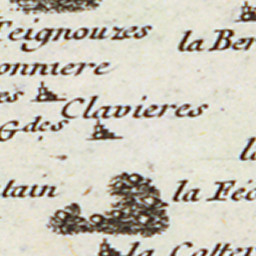 Teignouzes
la Ber
onniere
es
Clavieres
Gdes
la
lain
la Féc
la Cotte